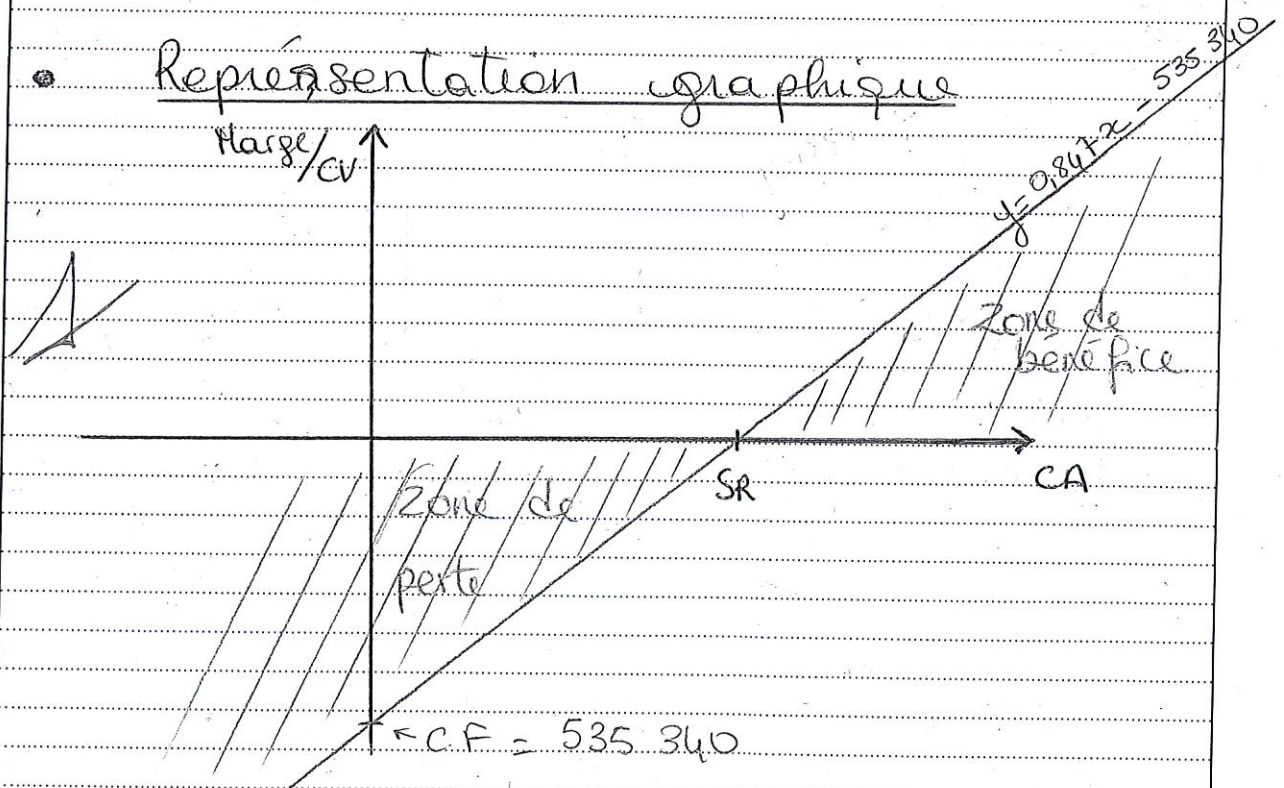 • Représentation graphique
Marge/CV
y = 0,847x - 535 340
Zone de
bénéfice
SR
CA
Zone de
perte
CF = 535 340